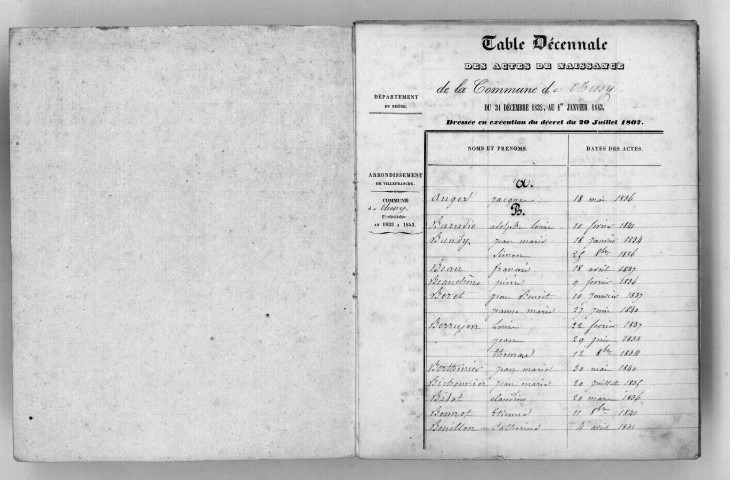 Table Décennale
DES ACTES DE NAISSANCE
de la Commune de Chessy
DU 31 DÉCEMBRE 1832, AU 1er JANVIER 1843.
Dressée en exécution du décret du 20 Juillet 1807.
DÉPARTEMENT
DU RHÔNE.
ARRONDISSEMENT
DE VILLEFRANCHE.
COMMUNE
de Chessy.
AN 1833 A 1843.
NOMS ET PRÉNOMS. DATES DES ACTES.
A.
Auger jacques 18 mai 1836
B.
adolphe Louise 10 février 1841
Bandy, jean marie 18 janvier 1834
Simon 25 8bre 1836
Béau français 18 avril 1837
pierre 9 février 1836
Beret jean Benoit 10 janvier 1837
jeanne marie 27 juin 1840
Berrujon Louise 22 février 1837
jean 29 juin 1833
thomas 12 8bre 1834
jean marie 30 mai 1840
jean marie 20 juillet 1835
Bidot claudine 20 mars 1836
Bonnet Etienne 11 8bre 1841
Bouillon Catherine 4 avril 1841